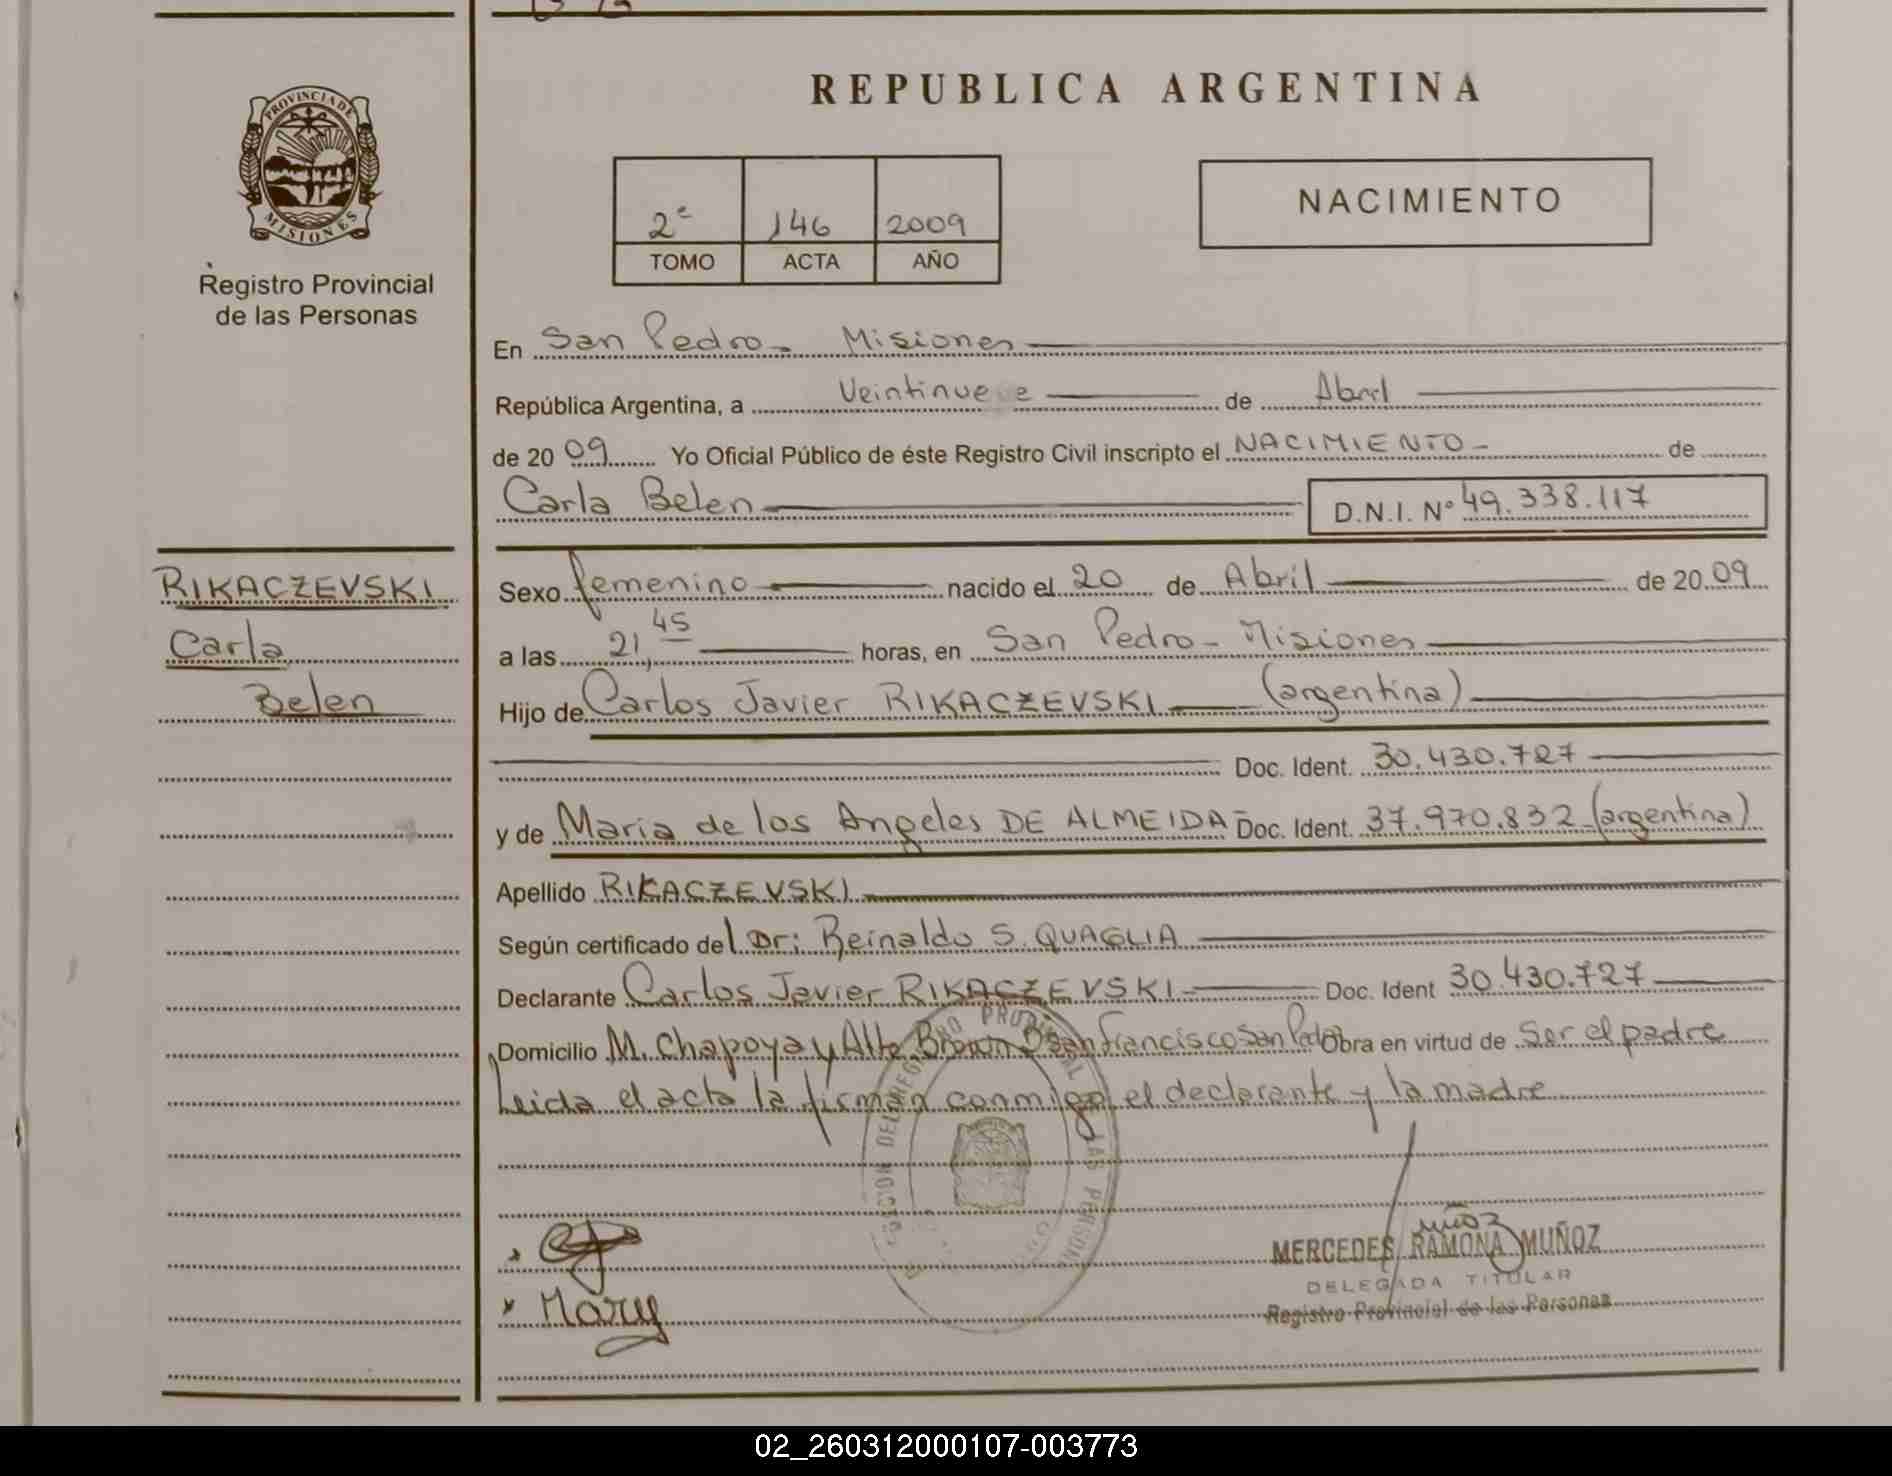 REPUBLICA ARGENTINA
PROVINCIA DE
MISIONES
Registro Provincial
de las Personas
2º 146 2009
TOMO ACTA AÑO
NACIMIENTO
En San Pedro - Misiones
República Argentina, a Veintinueve de Abril
de 2009 Yo Oficial Público de éste Registro Civil inscripto el NACIMIENTO - de
Carla Belen D.N.I. Nº 49.338.117
RIKACZEVSKI
Carla
Belen
Sexo femenino nacido el 20 de Abril de 2009
a las 21,45 horas, en San Pedro - Misiones
Hijo de Carlos Javier RIKACZEVSKI (argentina)
Doc. Ident. 30.430.727
y de Maria de los Angeles DE ALMEIDA - Doc. Ident. 37.970.832 (argentina)
Apellido RIKACZEVSKI
Según certificado del Dr: Reinaldo S. QUAGLIA
Declarante Carlos Javier RIKACZEVSKI Doc. Ident 30.430.727
Domicilio M. Chapoya y Alte Brown San Francisco San Pedro Obra en virtud de Ser el padre
Leida el acta la firman conmigo el declarante y la madre
DEL REGISTRO PROVINCIAL LAS PERSONAS
Mary
Muñoz
MERCEDES RAMONA MUÑOZ
DELEGADA TITULAR
Registro Provincial de las Personas
02_260312000107-003773